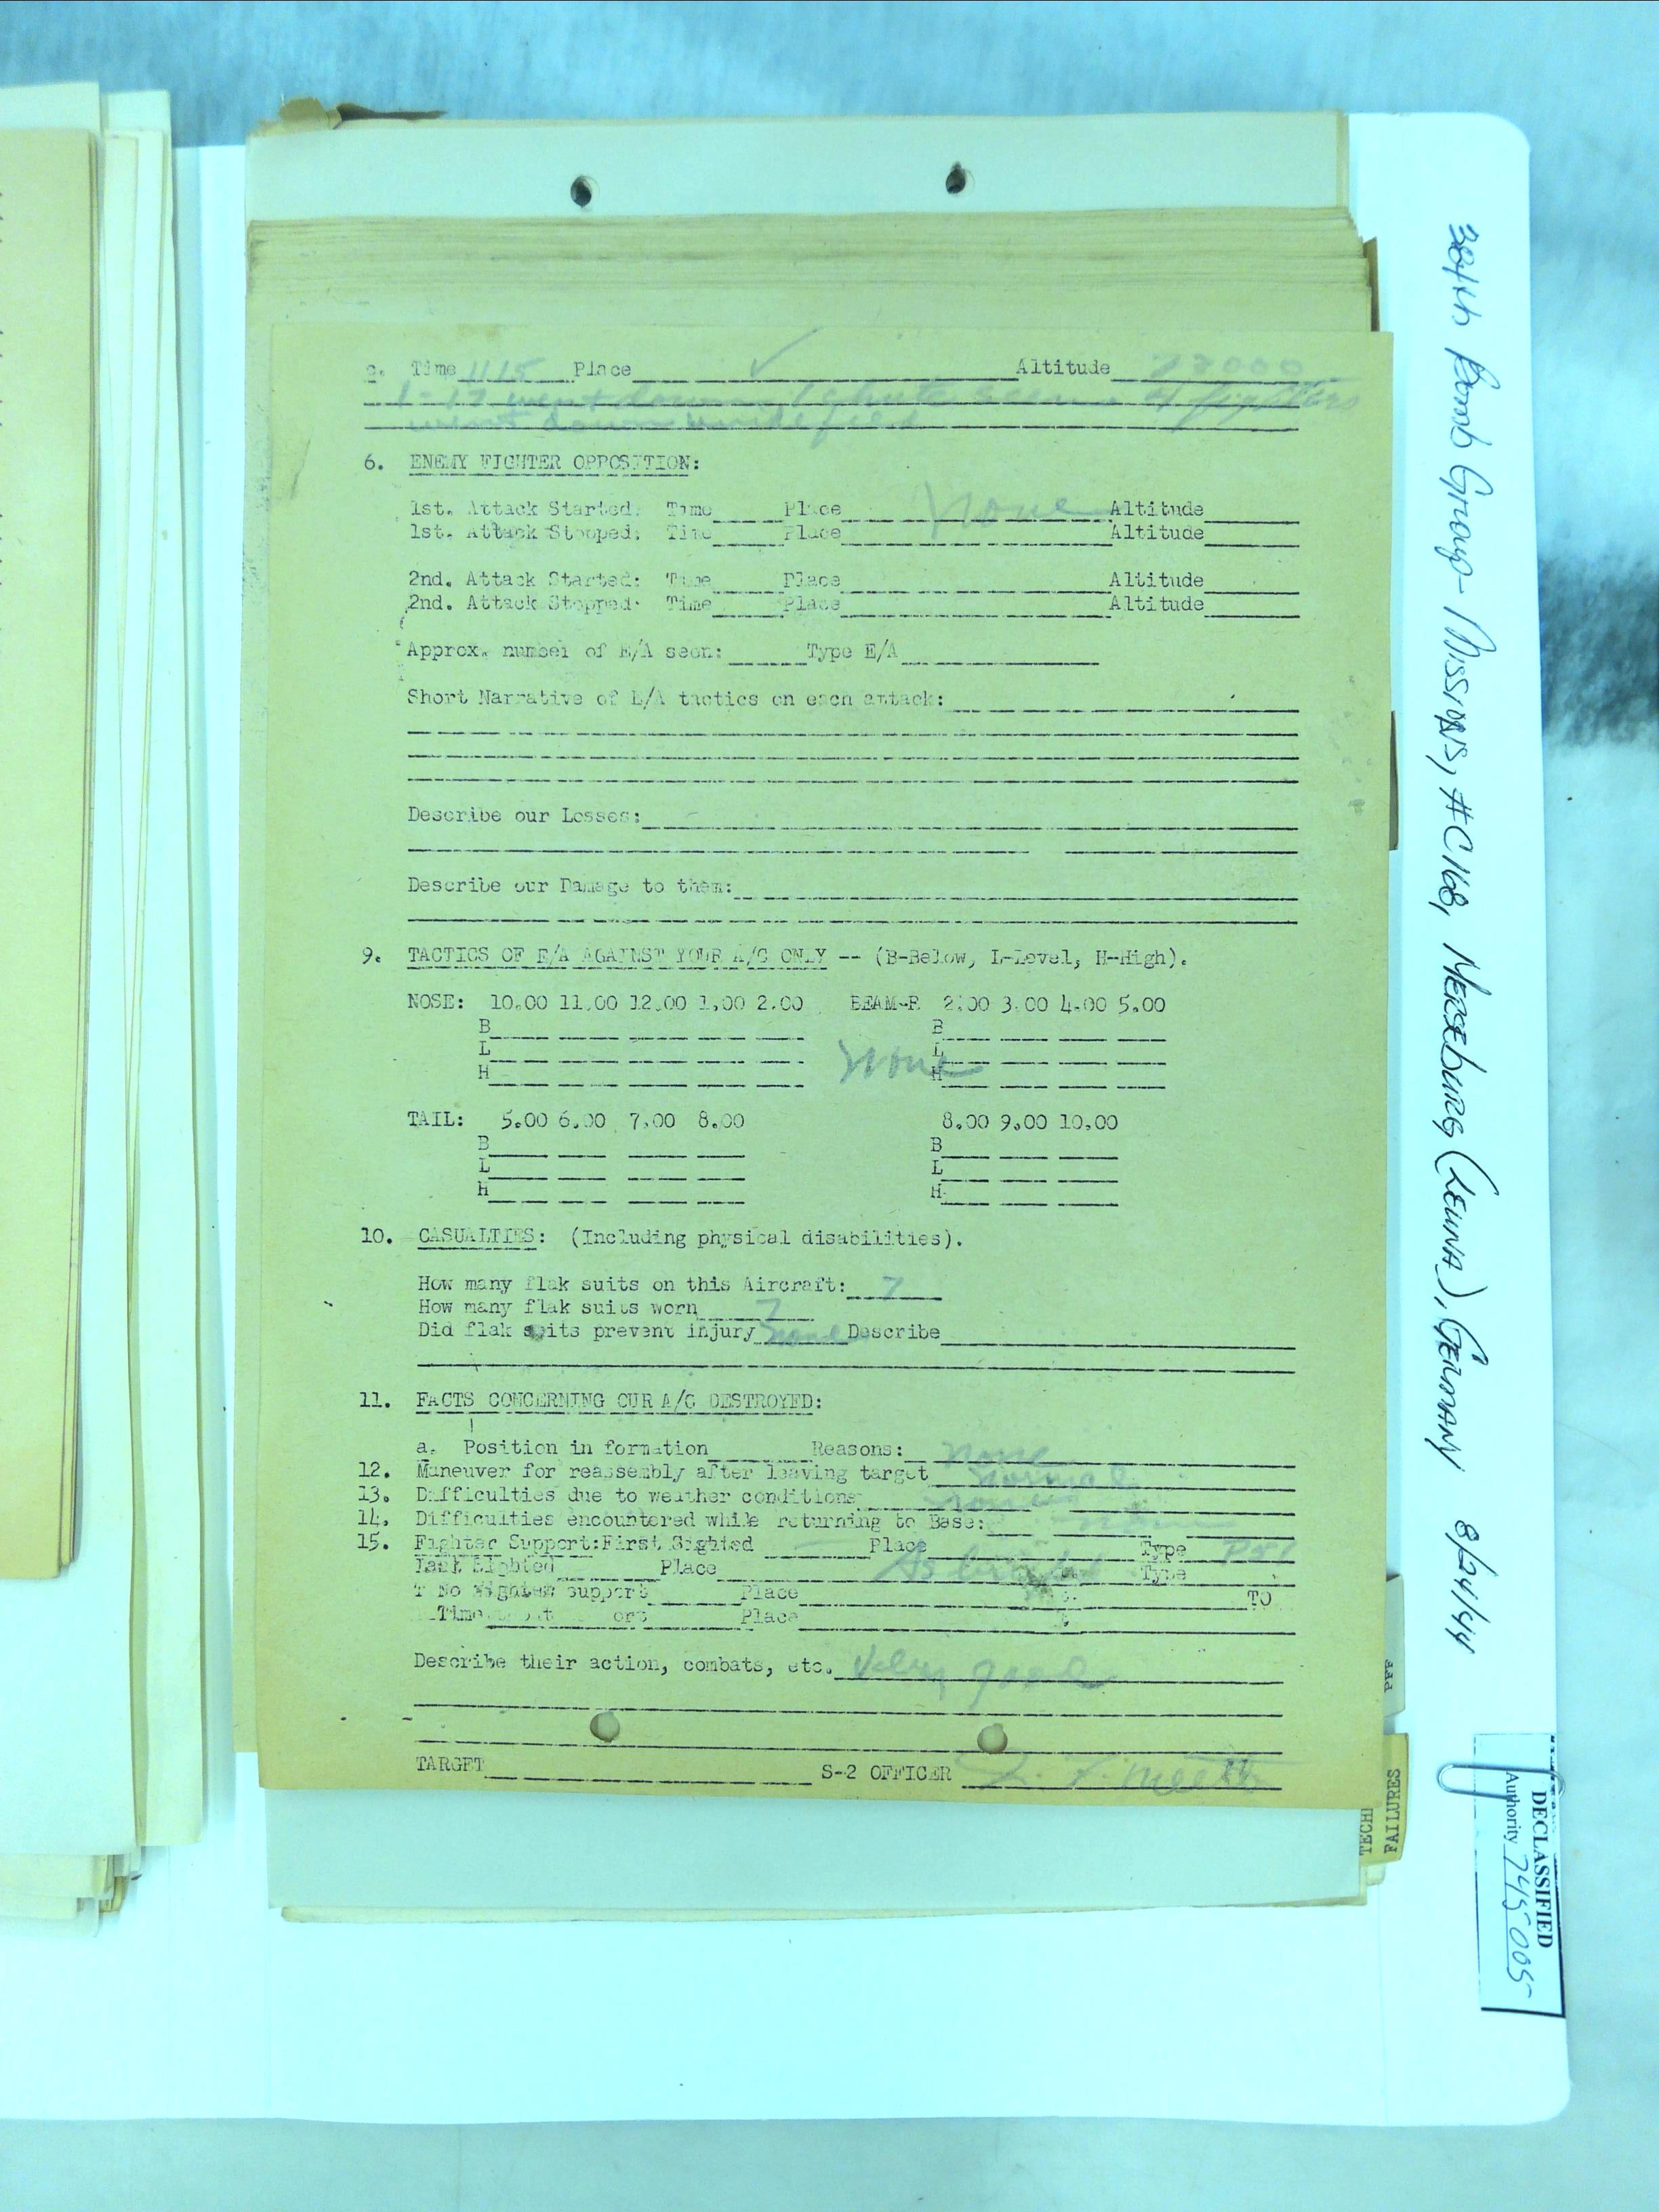 c. Time 1115 Place ✓ Altitude 23000
1-17 went down 1 chute seen 4 fighters
went down unidefied
6. ENEMY FIGHTER OPPOSITION:
1st. Attack Started: Time Place none Altitude
1st. Attack Stopped: Time Place Altitude
2nd. Attack Started: Time Place Altitude
2nd. Attack Stopped: Time Place Altitude
Approx. number of E/A seen: Type E/A
Short Narrative of E/A tactics on each attack:
Describe our Losses:
Describe our Damage to them:
9. TACTICS OF E/A AGAINST YOUR A/C ONLY -- (B-Below, L-Level, H-High).
NOSE: 10.00 11.00 12.00 1.00 2.00 BEAM-R 2.00 3.00 4.00 5.00
B B
L L
H none H
TAIL: 5.00 6.00 7.00 8.00 8.00 9.00 10.00
B B
L L
H H
10. CASUALTIES: (Including physical disabilities).
How many flak suits on this Aircraft: 7
How many flak suits worn 7
Did flak suits prevent injury none Describe
11. FACTS CONCERNING OUR A/C DESTROYED:
a. Position in formation Reasons: none
12. Maneuver for reassembly after leaving target normal
13. Difficulties due to weather conditions none
14. Difficulties encountered while returning to Base:
15. Fighter Support: First Sighted Place Type P51
Last Sighted Place As Type
No Fighter support Place TO
Time Place
Describe their action, combats, etc. Very good
TARGET S-2 OFFICER
384th Bomb Group - Missions, #C168, MERSEBURG (LEUNA), GERMANY 8/24/44
PFF
TECH
FAILURES
DECLASSIFIED
Authority 745005